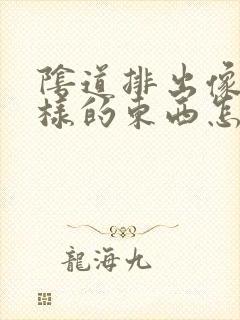 陰道排出像
樣的東西怎
龍海九